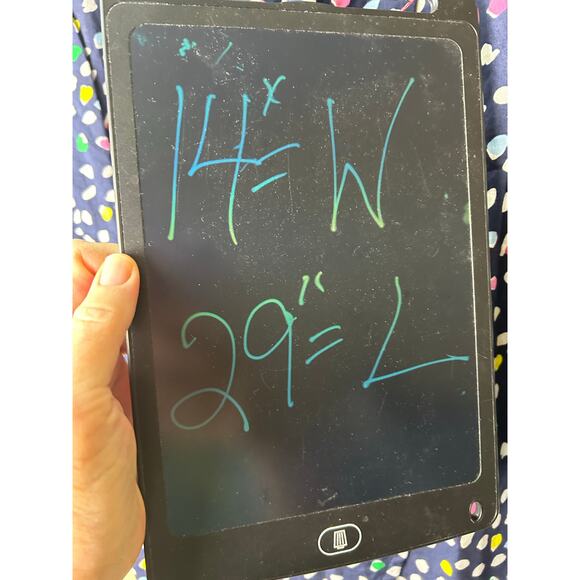 14"= W
29"= L